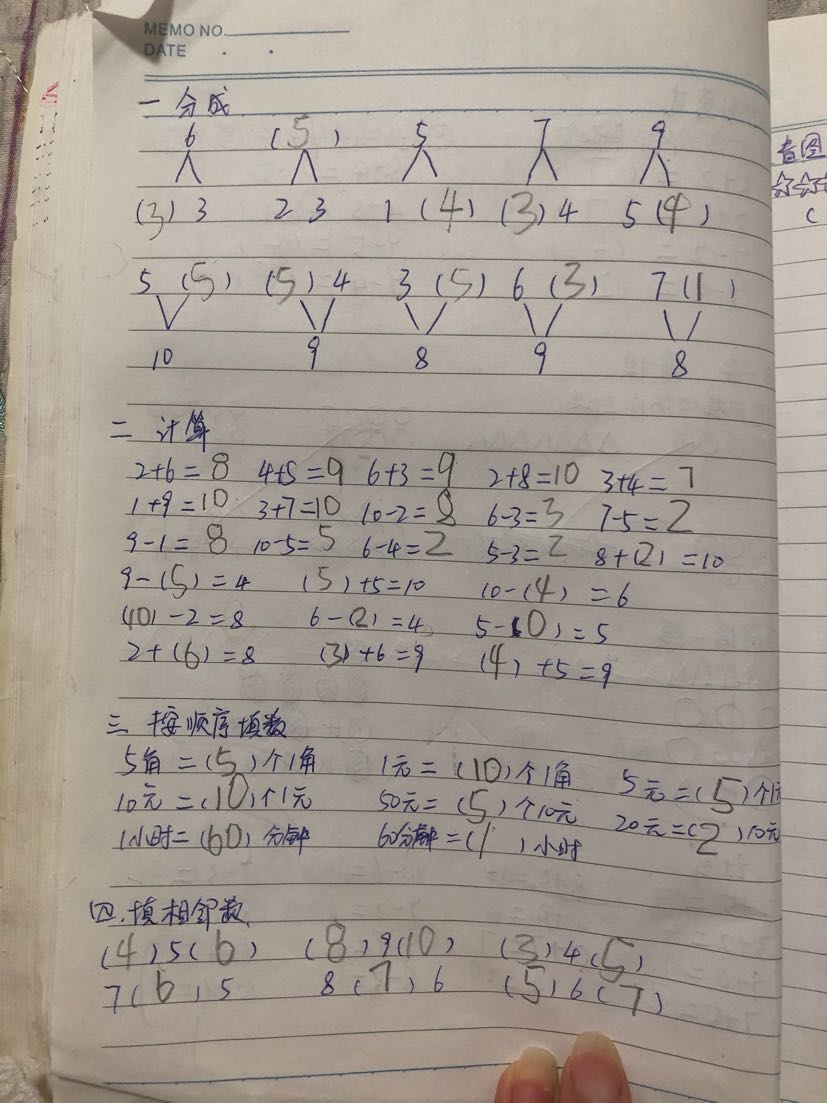 MEMO NO.
DATE . .
一 分成
6 (5) 5 7 9
(3) 3 2 3 1 (4) (3) 4 5 (4)
5 (5) (5) 4 3 (5) 6 (3) 7 (1)
10 9 8 9 8
二 计算
2+6=8 4+5=9 6+3=9 2+8=10 3+4=7
1+9=10 3+7=10 10-2=8 6-3=3 7-5=2
9-1=8 10-5=5 6-4=2 5-3=2 8+(2)=10
9-(5)=4 (5)+5=10 10-(4)=6
(10)-2=8 6-(2)=4 5-(0)=5
2+(6)=8 (3)+6=9 (4)+5=9
三 按顺序填数
5角=(5)个1角 1元=(10)个1角 5元=(5)个1元
10元=(10)个1元 50元=(5)个10元 20元=(2)10元
1小时=(60)分钟 60分钟=(1)小时
四.填相邻数
(4)5(6) (8)9(10) (3)4(5)
7(6)5 8(7)6 (5)6(7)
看图
☆☆☆
(